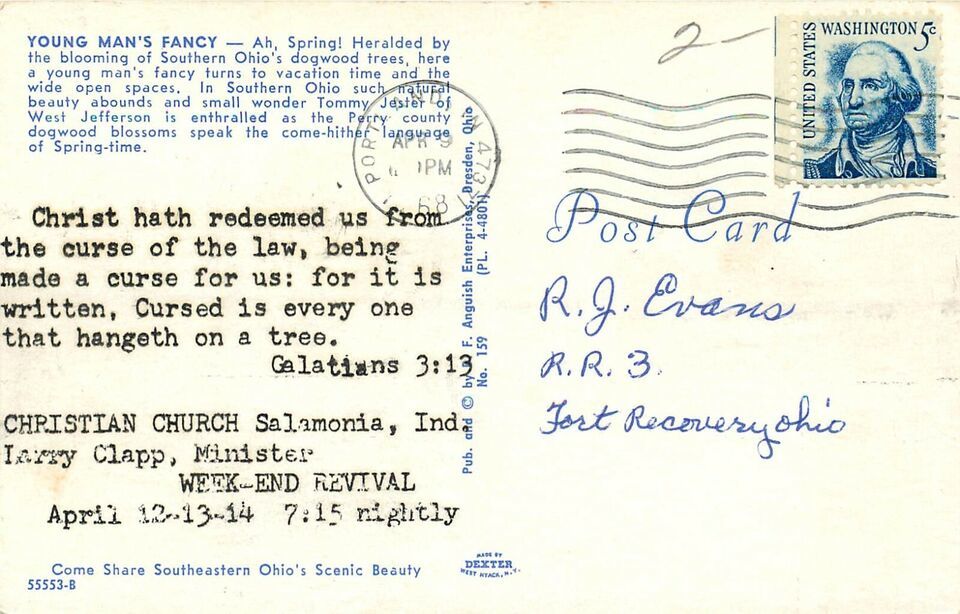 YOUNG MAN'S FANCY — Ah, Spring! Heralded by
the blooming of Southern Ohio's dogwood trees, here
a young man's fancy turns to vacation time and the
wide open spaces. In Southern Ohio such natural
beauty abounds and small wonder Tommy Jester of
West Jefferson is enthralled as the Perry county
dogwood blossoms speak the come-hither language
of Spring-time.
Christ hath redeemed us from
the curse of the law, being
made a curse for us: for it is
written, Cursed is every one
that hangeth on a tree.
Galatians 3:13
CHRISTIAN CHURCH Salamonia, Ind.
Larry Clapp, Minister
WEEK-END REVIVAL
April 12-13-14 7:15 nightly
Come Share Southeastern Ohio's Scenic Beauty
55553-B
Pub. and © by F. Anguish Enterprises, Dresden, Ohio
No. 159 (PL. 4-4801)
MADE BY
DEXTER
WEST NYACK, N.Y.
PORTLAND IN 47371
APR 9
PM
68
2-
UNITED STATES
WASHINGTON 5c
Post Card
R. J. Evans
R. R. 3.
Fort Recovery ohio